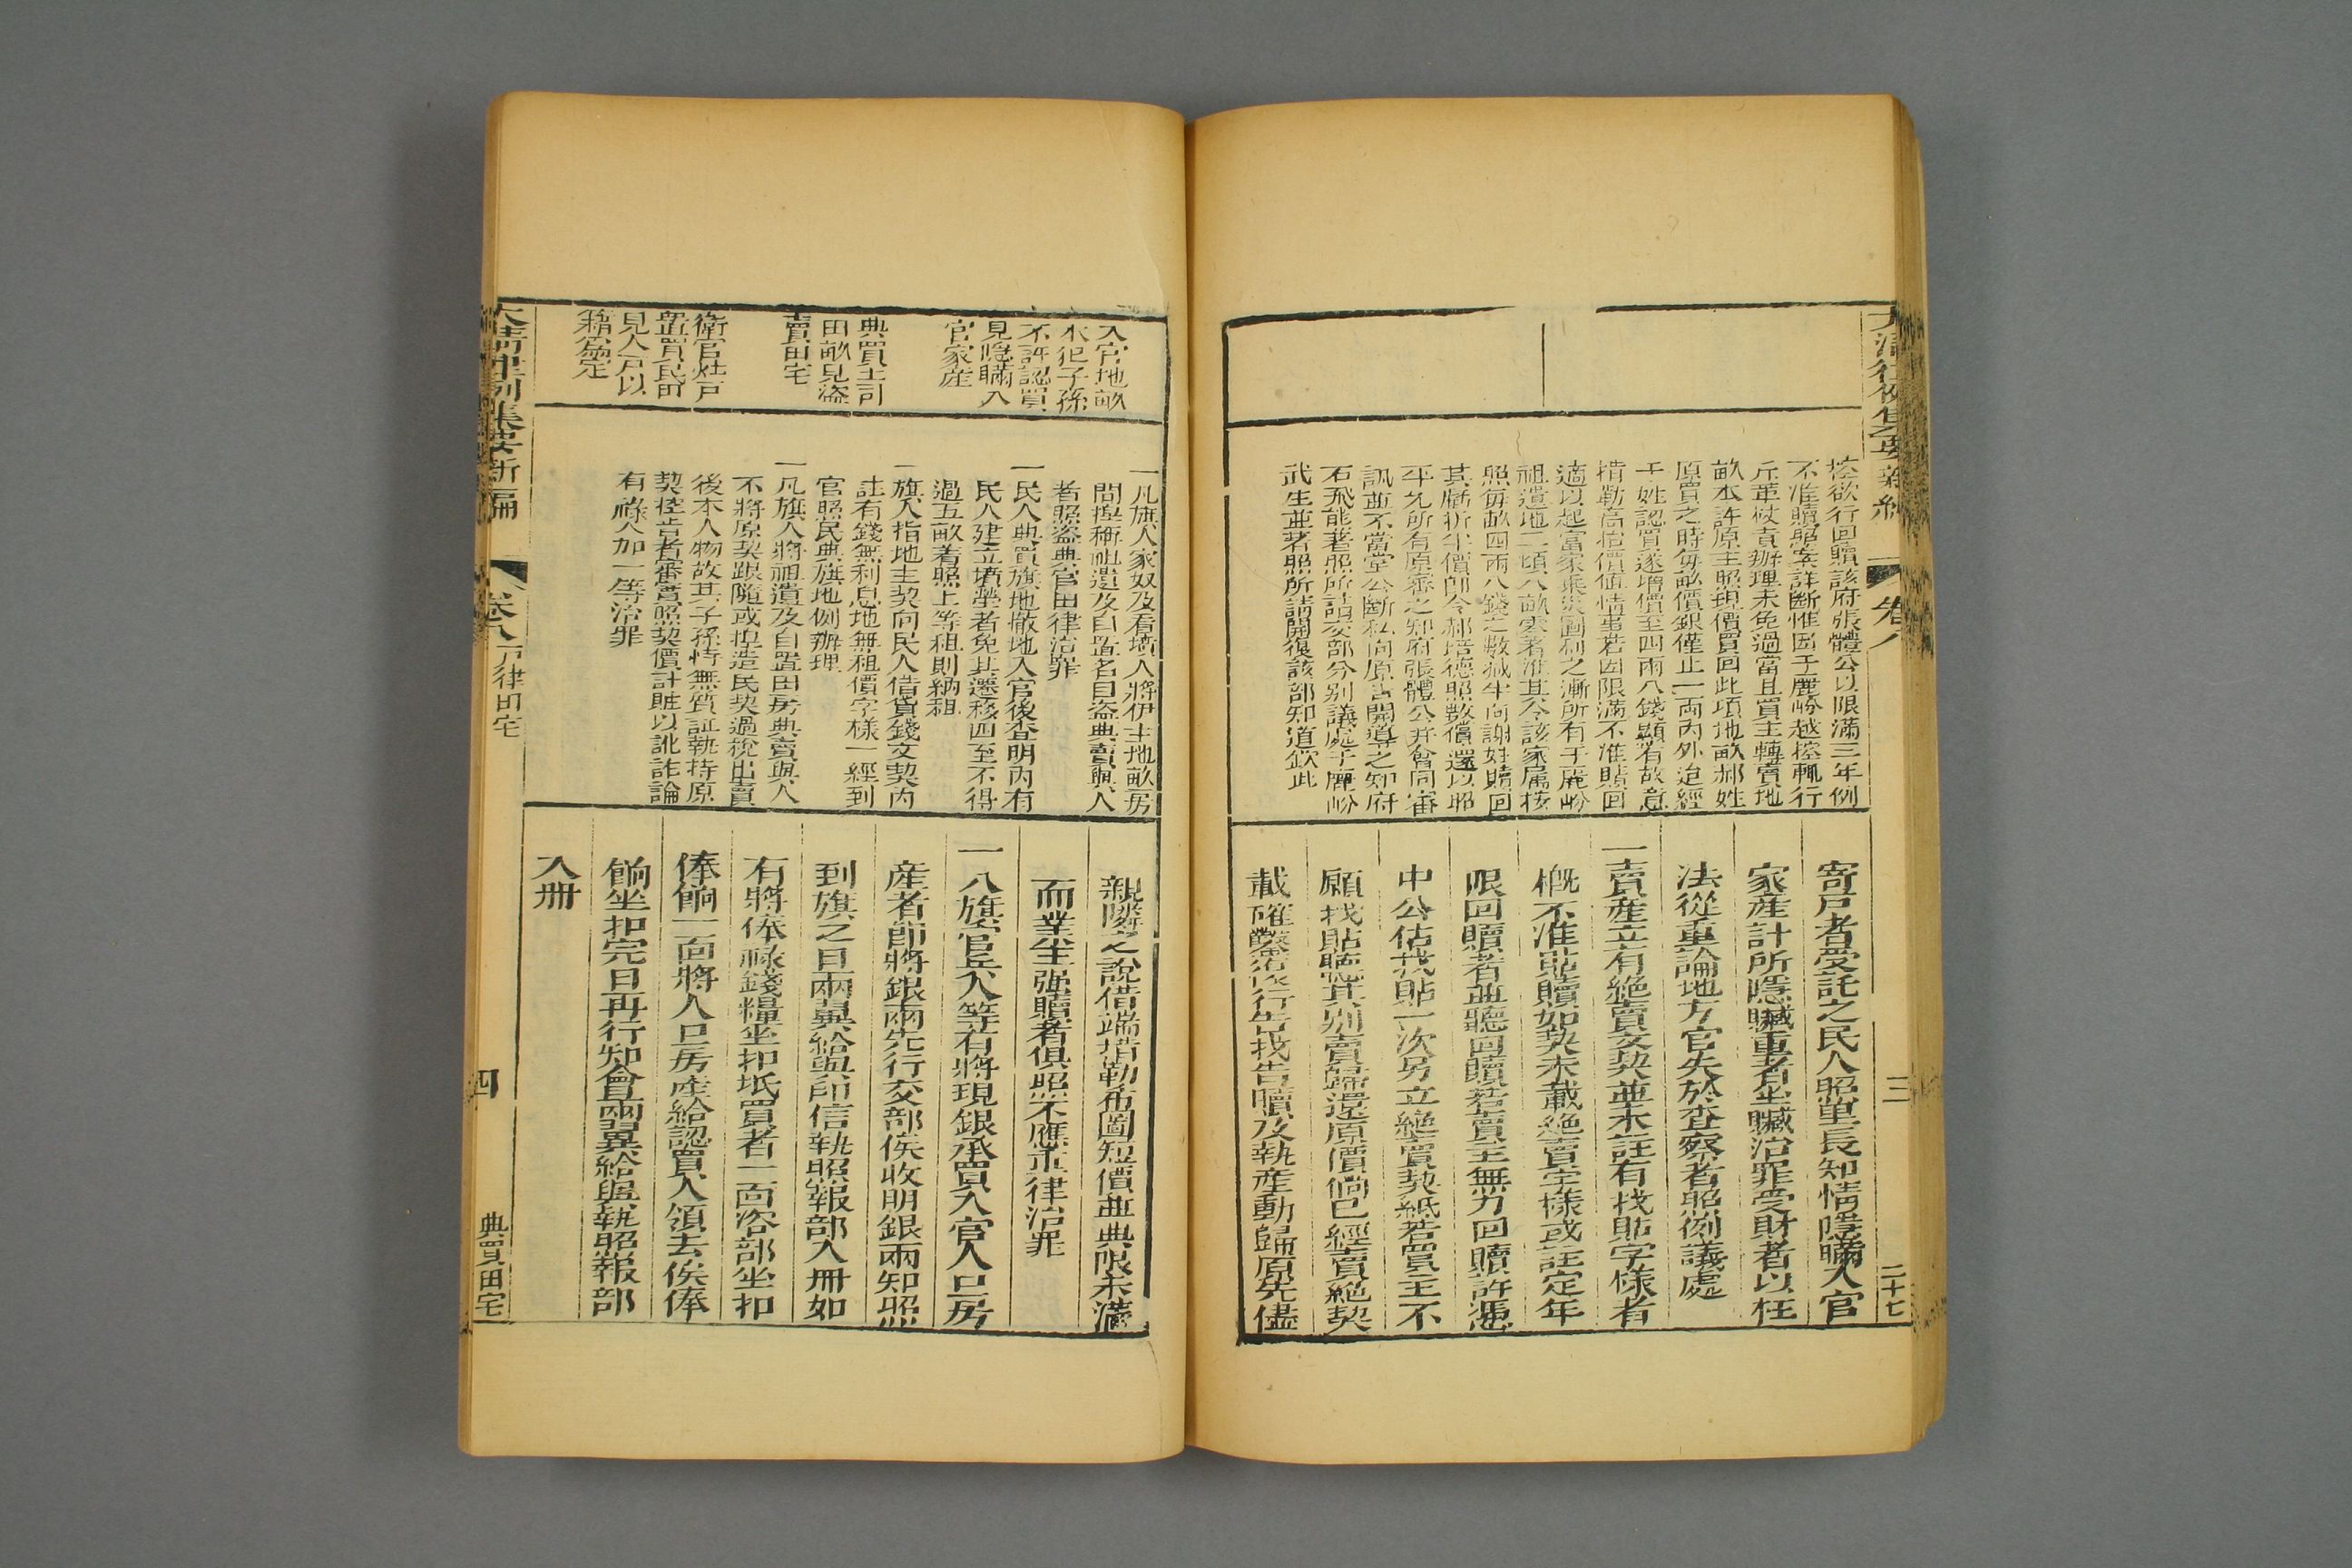 大清律例集要新編
卷八
三
二十七
控欲行回贖該府張體公以限滿三年例
不准贖照案詳斷惟因于麗崯越控輒行
斥革杖責辦理未免過當且買主轉賣地
畝本許原主照現價買回此項地畝郝姓
原買之時每畝價銀僅止一兩內外迨經
于姓認買遂增價至四兩八錢顯有故意
揹勒高擡價值情事若因限滿不准贖回
適以起富家乘災圖利之漸所有于麗崯
祖遺地二頃八畝零著准其令該家屬按
照每畝四兩八錢之數減半向謝姓贖回
其虧折半價即令郝培德照數償還以昭
平允所有原審之知府張體公并會同審
訊並不當堂公斷私向原告開導之知府
石飛能著照所請交部分別議處于麗崯
武生並著照所請開復該部知道欽此
寄戶者受託之民人照里長知情隱瞞入官
家產計所隱贓重者坐贓治罪受財者以枉
法從重論地方官失於查察者照例議處
一賣產立有絕賣文契並未註有找貼字樣者
概不准貼贖如契未載絕賣字樣或註定年
限回贖者並聽回贖若賣主無力回贖許憑
中公估找貼一次另立絕賣契紙若買主不
願找貼聽其別賣歸還原價倘已經賣絕契
載確鑿復行告找告贖及執產動歸原先儘
入官地畝
本犯子孫
不許認買
見隱瞞入
官家產
典買土司
田畝見盜
賣田宅
衛官灶戶
置買民田
見人戶以
籍為定
一凡旗人家奴及看墳人將伊主地畝房
間捏稱祖遺及自置名目盜典賣與人
者照盜典官田律治罪
一民人典買旗地撤地入官後查明內有
民人建立墳塋者免其遷移四至不得
過五畝着照上等租則納租
一旗人指地主契向民人借貸錢文契內
註有錢無利息地無租價字樣一經到
官照民典旗地例辦理
一凡旗人將祖遺及自置田房典賣與人
不將原契跟隨或捏造民契過稅出賣
後本人物故其子孫恃無質証執持原
契控告者審實照契價計贓以訛詐論
有祿人加一等治罪
親隣之說借端揹勒希圖短價並典限未滿
而業主強贖者俱照不應重律治罪
一八旗官兵人等有將現銀承買入官人口房
產者節將銀兩先行交部俟收明銀兩知照
到旗之日兩翼給與印信執照報部入冊如
有將俸祿錢糧坐扣抵買者一面咨部坐扣
俸餉一面將人口房產給認買人領去俟俸
餉坐扣完日再行知會兩翼給與執照報部
入冊
大清律例集要新編
卷八
戶律田宅
四
典買田宅